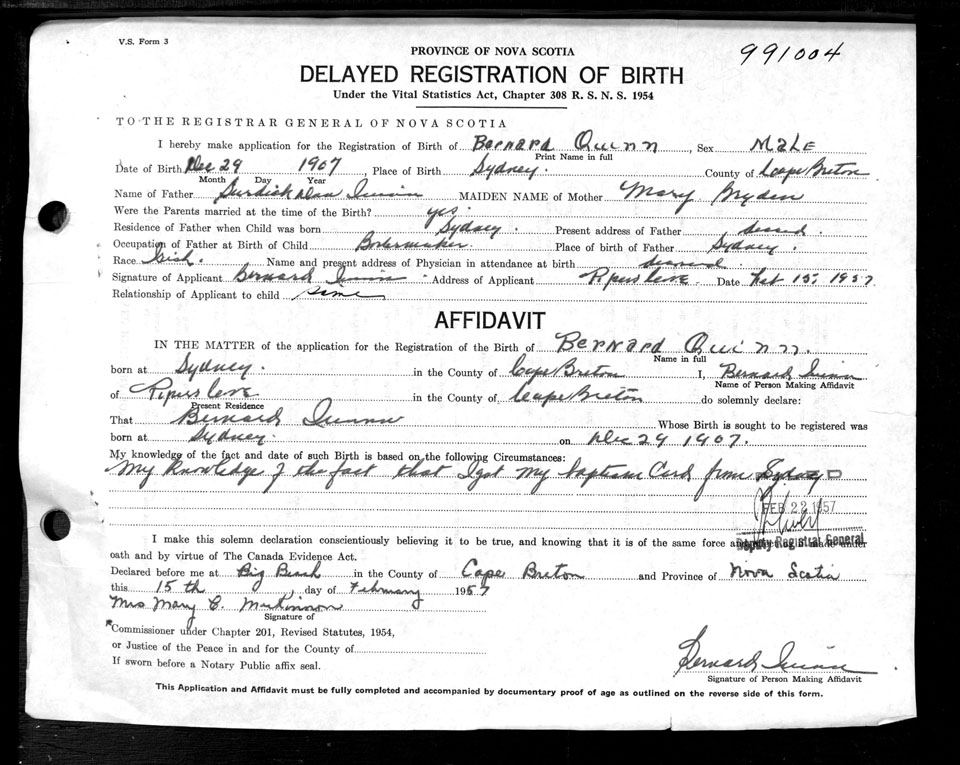 V.S. Form 3
991004
PROVINCE OF NOVA SCOTIA
DELAYED REGISTRATION OF BIRTH
Under the Vital Statistics Act, Chapter 308 R. S. N. S. 1954
TO THE REGISTRAR GENERAL OF NOVA SCOTIA
I hereby make application for the Registration of Birth of Bernard Quinn, Sex Male
Print Name in full
Date of Birth Dec 29 1907, Place of Birth Sydney. County of Cape Breton
Month Day Year
Name of Father Quinn MAIDEN NAME of Mother Mary Bryden
Were the Parents married at the time of the Birth? yes.
Residence of Father when Child was born Sydney. Present address of Father
Occupation of Father at Birth of Child Boilermaker. Place of birth of Father Sydney.
Race Irish. Name and present address of Physician in attendance at birth
Signature of Applicant Bernard Quinn Address of Applicant Date Feb 15, 1957.
Relationship of Applicant to child same
AFFIDAVIT
IN THE MATTER of the application for the Registration of the Birth of Bernard Quinn.
Name in full
born at Sydney. in the County of Cape Breton I, Bernard Quinn
Name of Person Making Affidavit
of in the County of Cape Breton do solemnly declare:
Present Residence
That Bernard Quinn Whose Birth is sought to be registered was
born at Sydney. on Dec 29 1907.
My knowledge of the fact and date of such Birth is based on the following Circumstances:
My Knowledge of the fact that I got my baptism Card from Sydney
FEB 22 1957
Deputy Registrar General
I make this solemn declaration conscientiously believing it to be true, and knowing that it is of the same force and under
oath and by virtue of The Canada Evidence Act.
Declared before me at Big Beach in the County of Cape Breton and Province of Nova Scotia
this 15th, day of February 1957
Mrs Mary C. McKinnon
Signature of
*Commissioner under Chapter 201, Revised Statutes, 1954,
or Justice of the Peace in and for the County of
If sworn before a Notary Public affix seal.
Bernard Quinn
Signature of Person Making Affidavit
This Application and Affidavit must be fully completed and accompanied by documentary proof of age as outlined on the reverse side of this form.